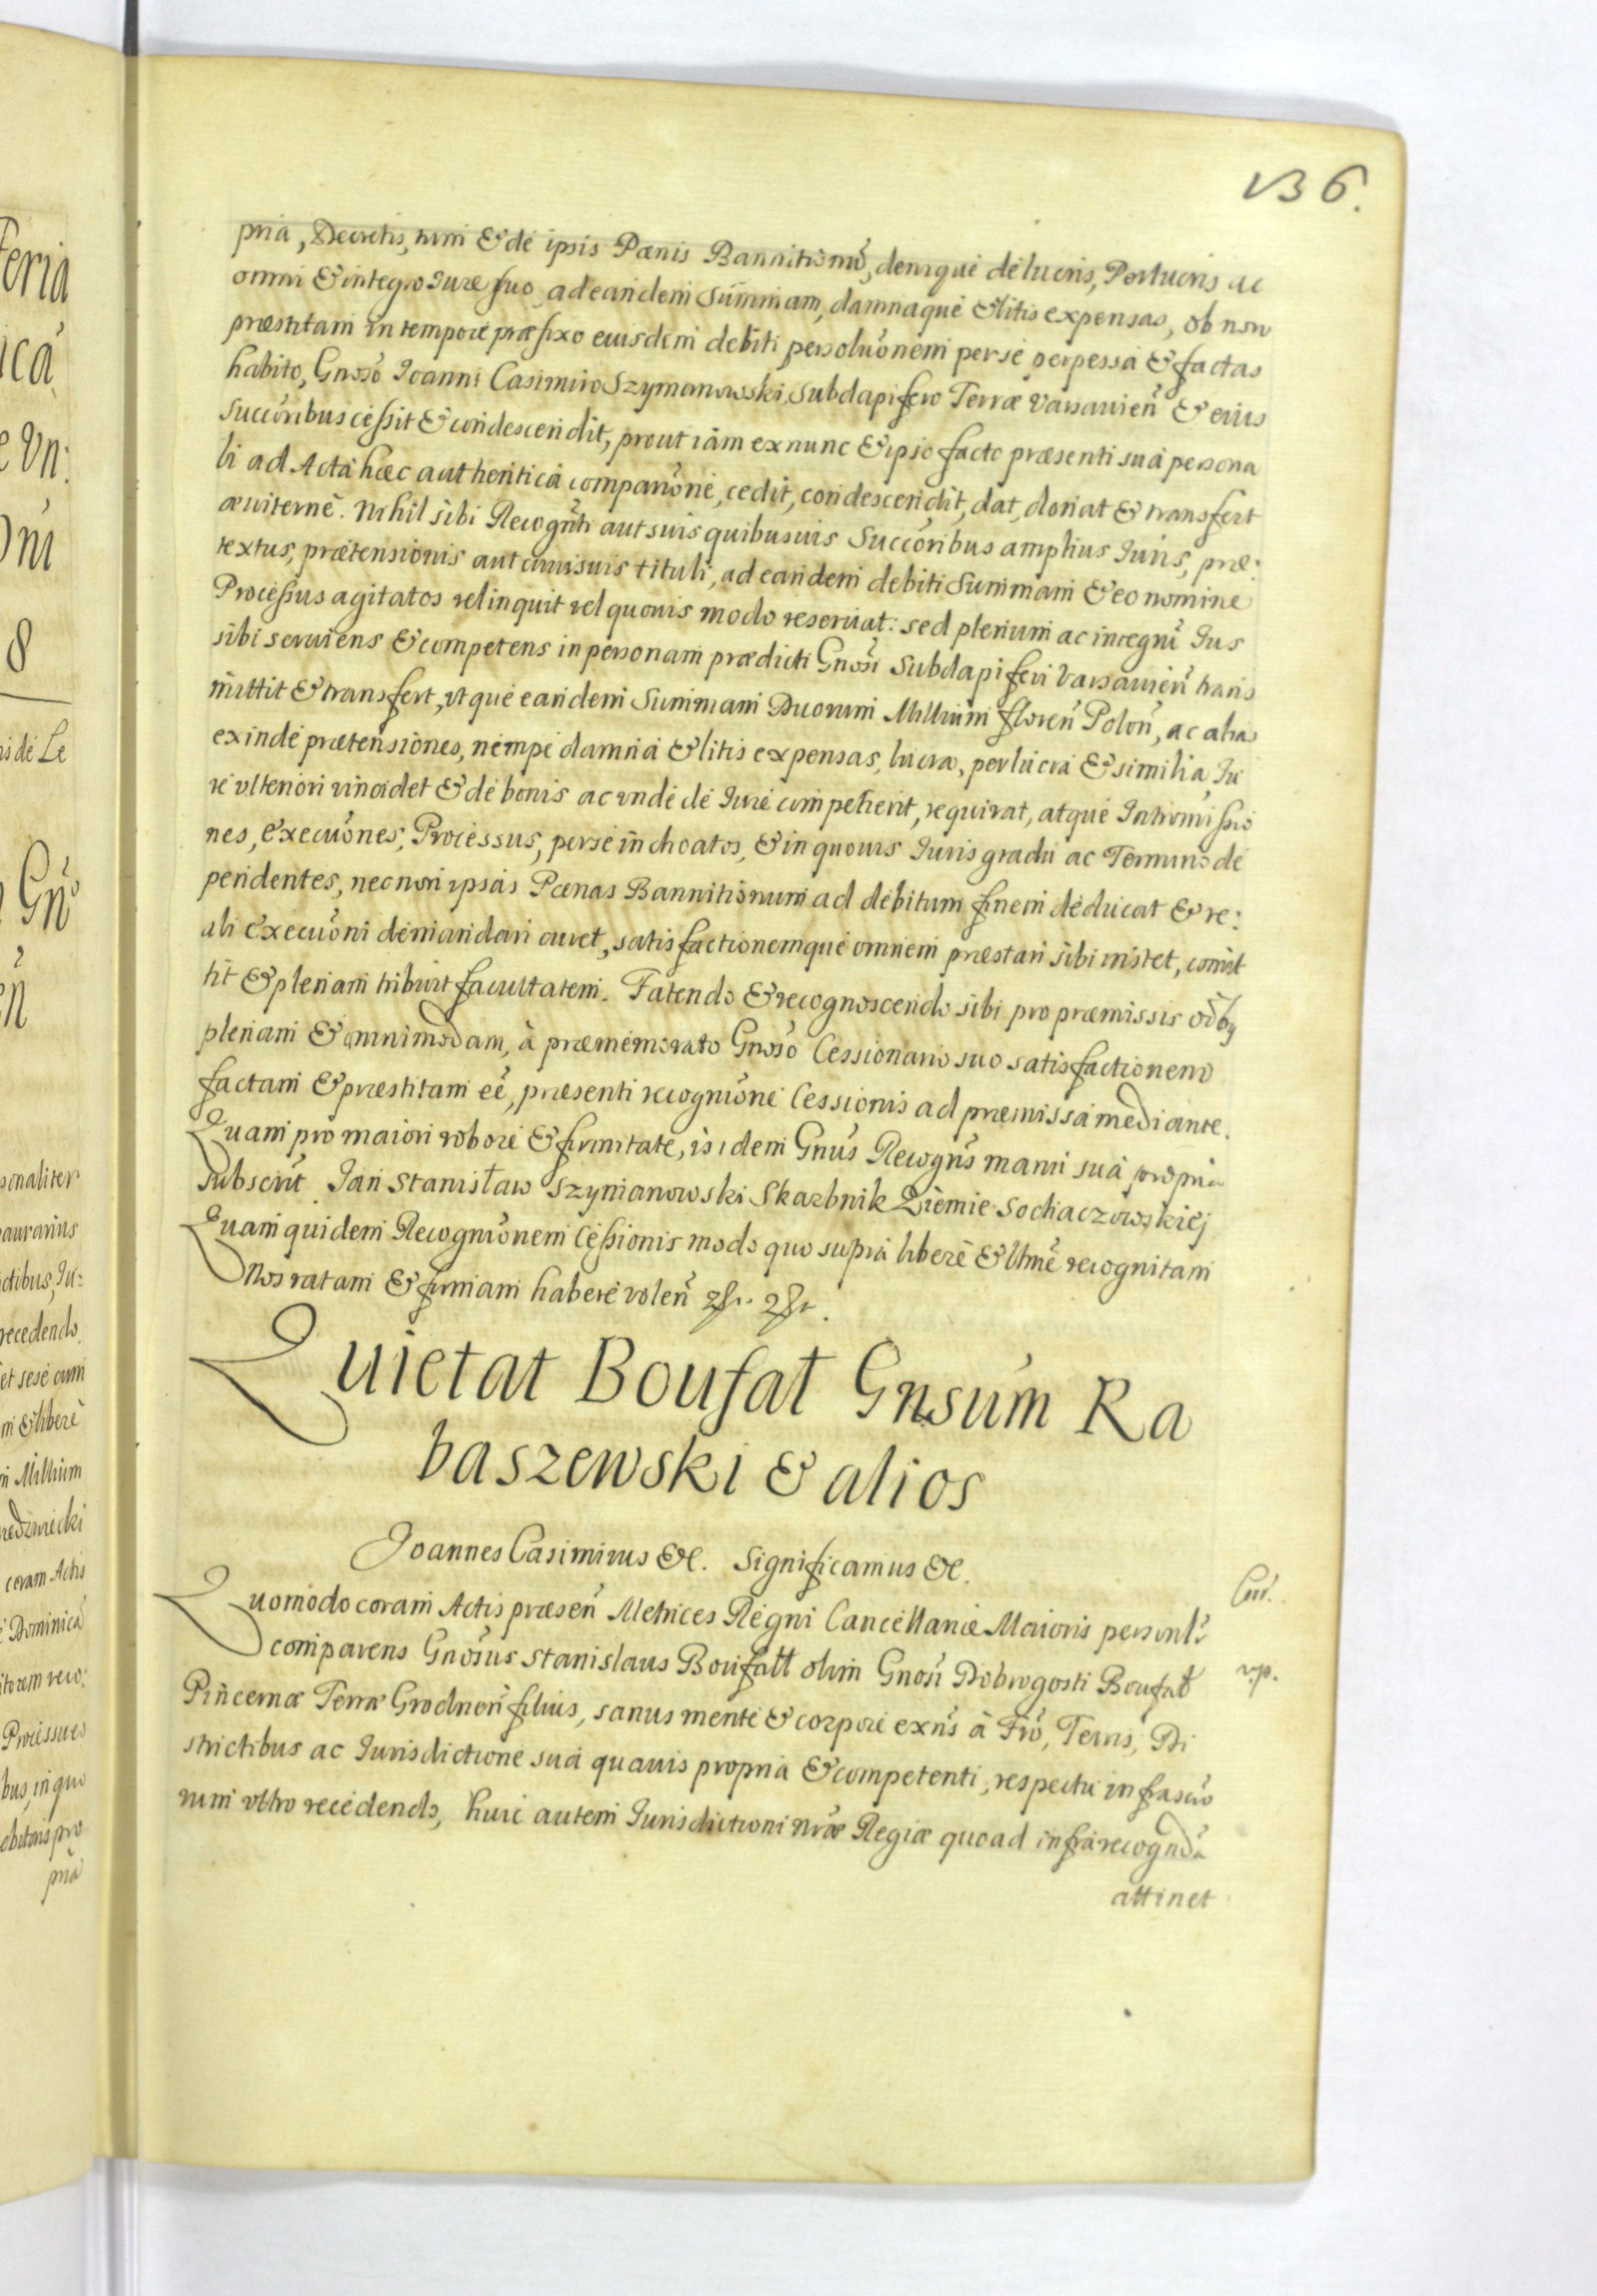 136.
pria, Decretis, tum & de ipsis Pœnis Bannitionū, denique de lucris, Perlucris ac
omni & integro Iure suo, ad eandem Summam, damnaque & litis expensas, ob non
præstitam in tempore præfixo eiusdem debiti persoluōnem per se perpessa & factas
habito, Gnoso Ioanni Casimiro Szymanowski, Subdapifero Terræ Varsauień & eius
Succōribus cessit & condescendit, prout iam ex nunc & ipso facto præsenti sua persona
li ad Acta hæc authentica comparōne, cedit, condescendit, dat, donat & transfert
æuiternè. Nihil sibi Recognti aut suis quibusuis Succōribus amplius Iuris, præ:
textus, prætensionis aut cuiusuis tituli, ad eandem debiti Summam & eo nomine
Processus agitatos relinquit vel quouis modo reseruat: sed plenum ac integrū Ius
sibi seruiens & competens in personam prædicti Gnosi Subdapiferi Varsauień trans
mittit & transfert, vt que eandem Summam Duorum Millium floreń Poloń, ac alias
exinde prætensiones, nempe damna & litis expensas, lucra, perlucra & similia, Iu
re vlteriori vindicet & de bonis ac vnde de Iure competierit, requirat, atque Intromissio
nes, execuōnes, Processus, per se inchoatos, & in quouis Iuris gradu ac Termino de
pendentes, necnon ipsas Pœnas Bannitionum ad debitum finem deducat & re:
ali execuōni demandari curet, satisfactionemque omnem præstari sibi instet, comit
tit & plenam tribuit facultatem. Fatendo & recognoscendo sibi pro præmissis oībȝ
plenam & omnimodam, à præmemorato Gnoso Cessionario suo satisfactionem
factam & præstitam eē, præsenti recogniōne Cessionis ad præmissa mediante.
Quam pro maiori robore & firmitate, isidem Gnus Recogns manu sua propria
subscrit. Jan Stanisław Szymanowski Skarbnik Ziemie Sochaczowskiej
Quam quidem Recogniōnem Cessionis modo quo supra liberè & lltmē recognitam
Nos ratam & firmam habere voleń
QuietatBoufał Gnsum Ra
baszewski & alios
Joannes Casimirus &c. Significamus &c.
Quomodo coram Actis præseń Metrices Regni Cancellariæ Maioris personlr
comparens Gnosus Stanislaus Boufałł olim Gnosi Dobrogosti Boufał
Pincernæ Terræ Grodneń filius, sanus mente & corpore exns à Fro, Terris, Di
strictibus ac Iurisdictione sua quauis propria & competenti, respectu infrascrō
rum vltro recedendo, huic autem Iurisdictioni nræ Regiæ quoad infrarecognda
attinet